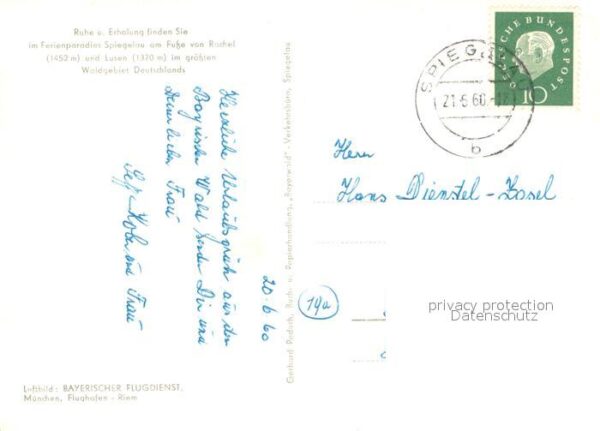 Ruhe u. Erholung finden Sie
im Ferienparadies Spiegelau am Fuße von Rachel
(1452 m) und Lusen (1370 m) im größten
Waldgebiet Deutschlands
20.6.60
Herzliche Urlaubsgrüße aus dem
Bayrischen Wald senden Dir und
Deiner lieben Frau
und Frau
Gerhard Buch- u. Papierhandlung, "Bayerwald"-Verkehrsbüro, Spiegelau
DEUTSCHE BUNDESPOST
10
SPIEGELAU
21.6.60
b
Herrn
Hans Dienstel-
14a
privacy protection
Datenschutz
Luftbild: BAYERISCHER FLUGDIENST,
München, Flughafen - Riem